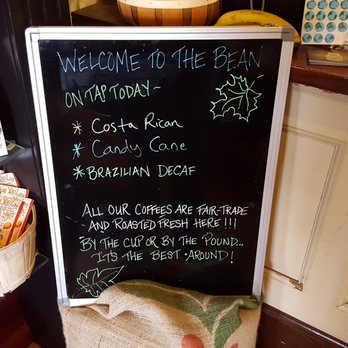 WELCOME TO THE BEAN
ON TAP TODAY~
* Costa Rican
* Candy Cane
* BRAZILIAN DECAF
ALL OUR COFFEES ARE FAIR-TRADE
AND ROASTED FRESH HERE!!!
BY THE CUP OR BY THE POUND...
IT'S THE BEST AROUND!